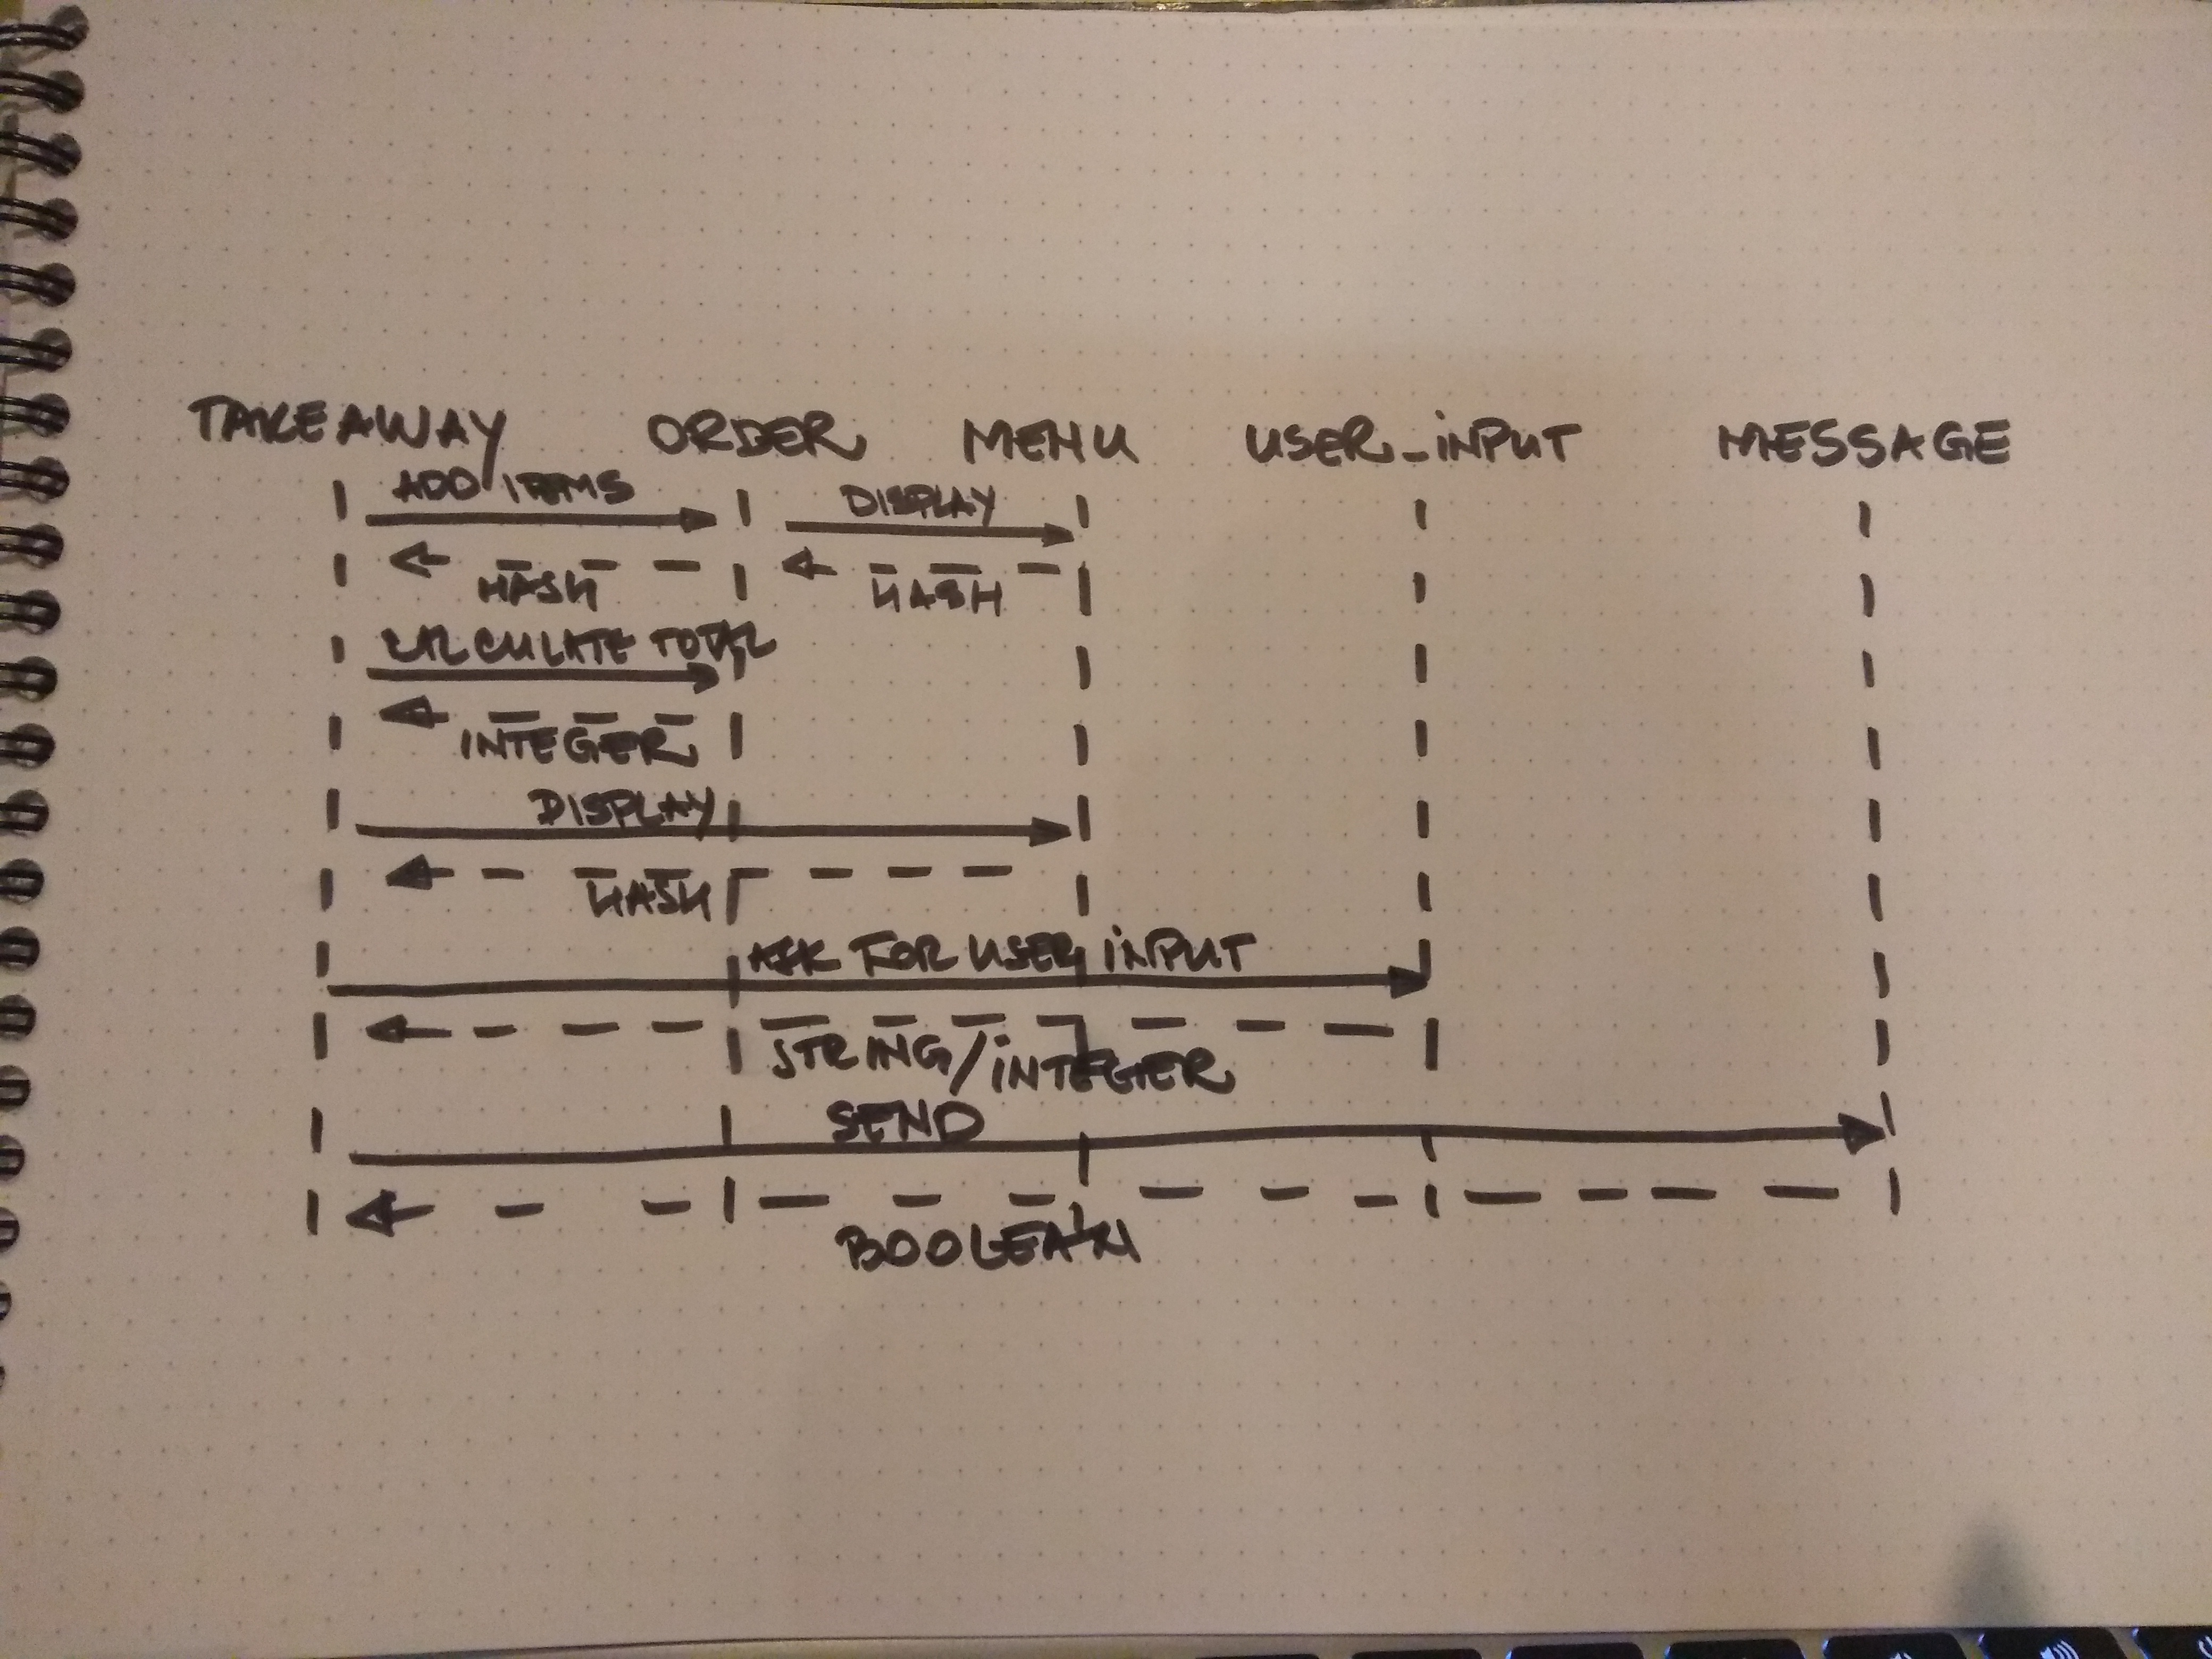 TAKEAWAY ORDER MENU USER_INPUT MESSAGE
ADD ITEMS DISPLAY
HASH HASH
CALCULATE TOTAL
INTEGER
DISPLAY
HASH
ASK FOR USER INPUT
STRING/INTEGER
SEND
BOOLEAN